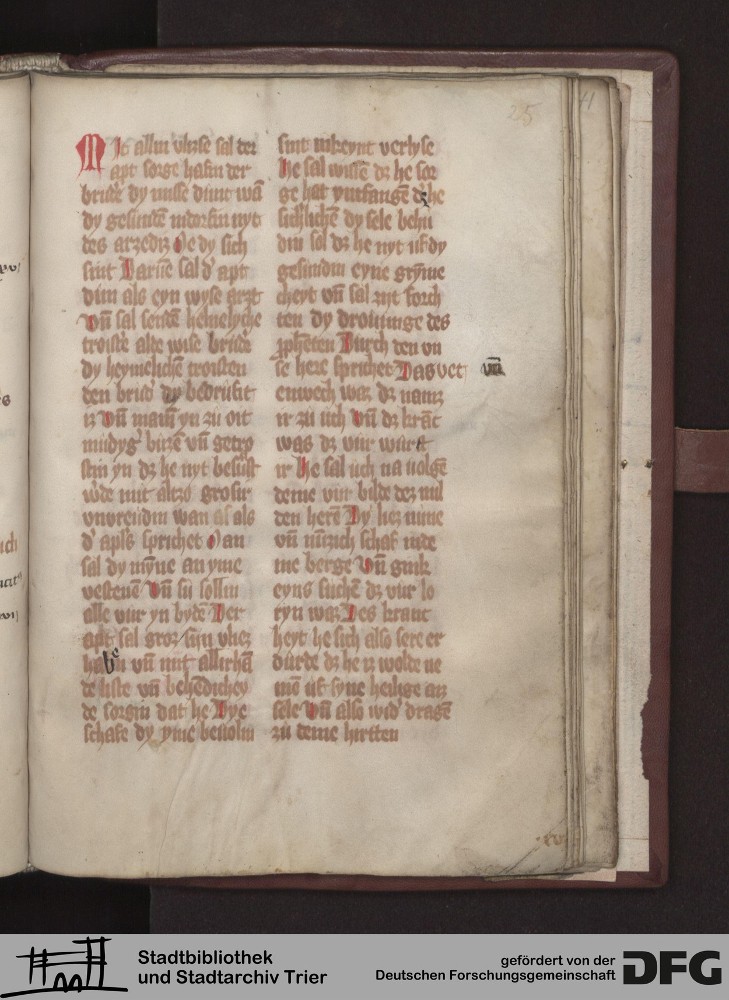 25
41
Mit allin vlizse sal der
apt sorge habin der
brud'e dy misse dunt wā
dy gesundē indorfin nyt
des arzedis He dy sich
sint Darūe sal d' apt
dun als eyn wyse arzt
Vn̄ sal sendē heinelyche
troiste alde wise brud'e
dy heymelichē troisten
den brud' dy bedrubit
iz Vn̄ manī yn zu oit
mudyg' buzē vn̄ getro
stin yn dz he nyt besuft
w'de mit alizo grosir
vnvreudin wan als als
d' apls sprichet Man
sal dy mȳne an yme
vestenē Vn̄ sy sollin
alle vur yn bydē Der
apt sal groz sun vliez
habin vn̄ mit allirhā
de liste vn̄ behēdichey
de sorgin dat he Dye
schafe dy yme beuolin
sint inkeynt verlyse
He sal wissē dz he sor
ge hat yntfangē dz he
sichlichē dy sele behu
din sol dz he nyt ubdy
gesundin eyne grȳme
cheyt vn̄ sal mit forch
ten dy drouunge des
ꝓpheten Durch den vn
se here sprichet Das vet
enwech waz dz namz
ir zu uch Vn̄ dz krāc
was dz vur wurft
ir He sal uch na uolgē
deme vur bilde dez mil
den herē Dy liez nune
vn̄ nūzich schaf inde
me berge Vn̄ ginc
eyns suchē dz vur lo
ryn waz Des kranc
heyt he sich also sere er
durde dz he iz wolde ne
mē uf syne heilige au
sele Vn̄ also wid' dragē
zu deme hirtten
Stadtbibliothek
und Stadtarchiv Trier
gefördert von der
Deutschen Forschungsgemeinschaft
DFG